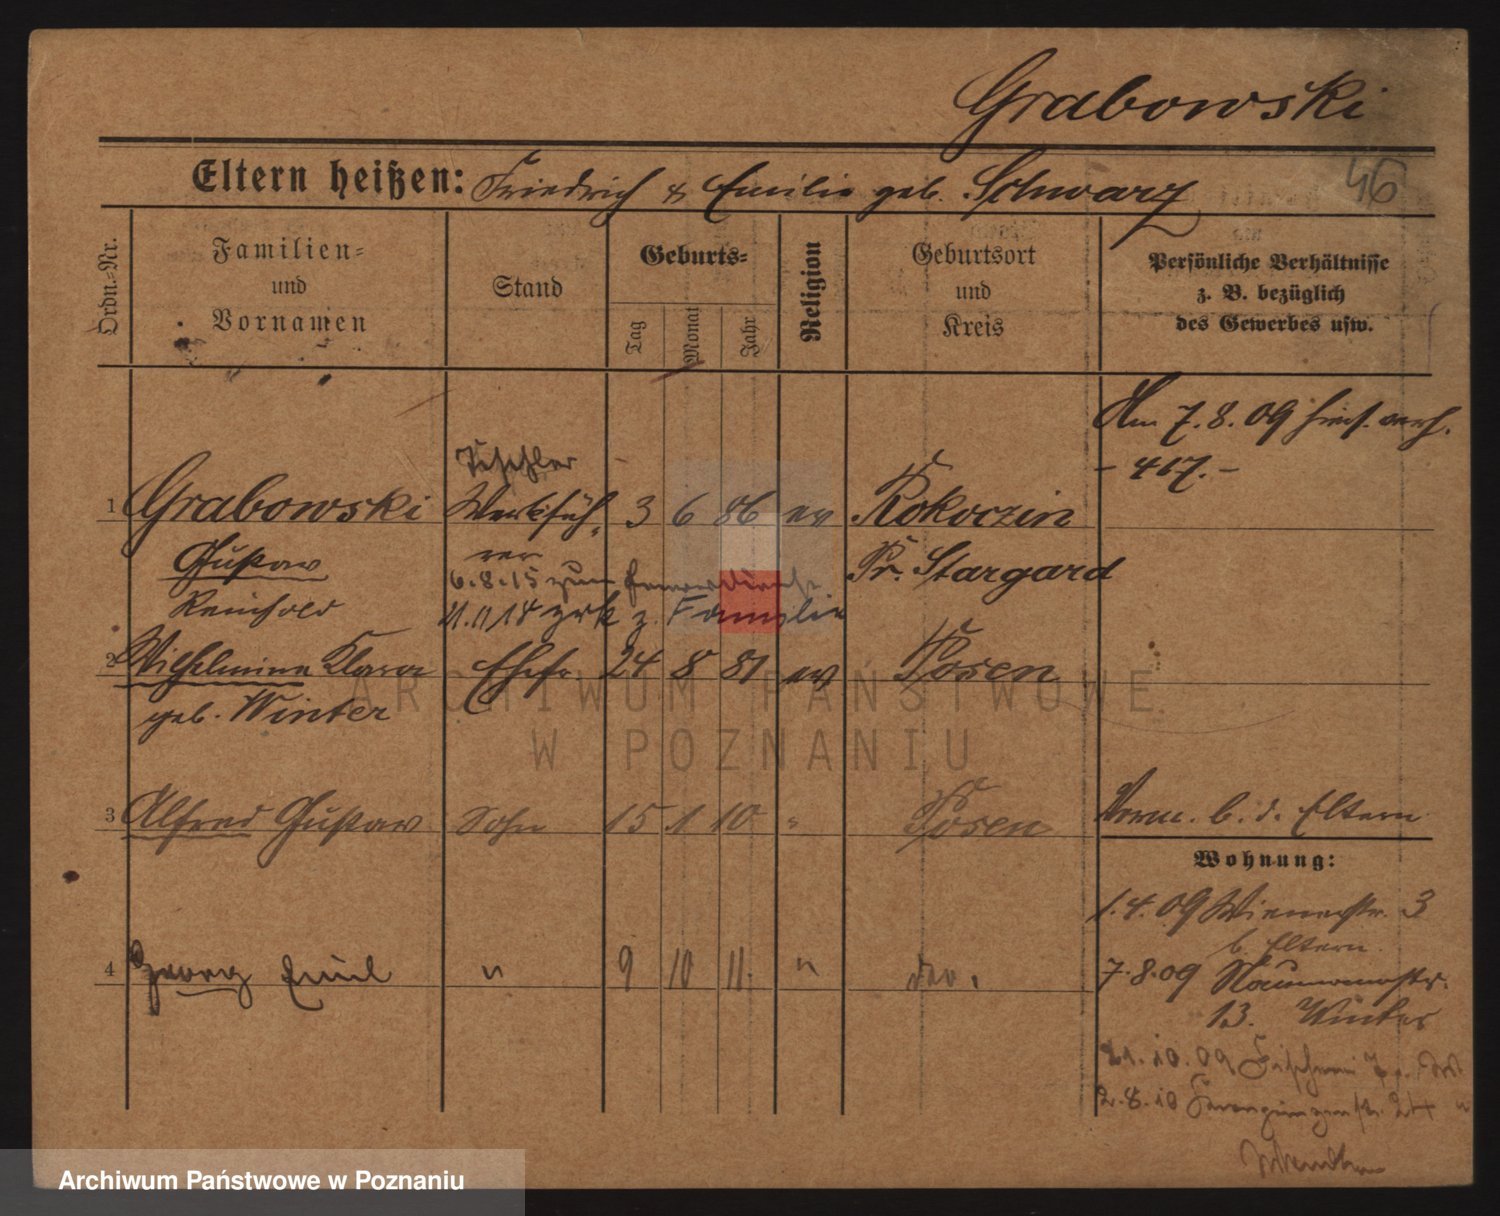 Grabowski
46
Eltern heißen: Friedrich & Emilie geb. Schwarz
Ordn.-Nr.
Familien-
und
Vornamen
Stand
Geburts-
Tag
Monat
Jahr
Religion
Geburtsort
und
Kreis
Persönliche Verhältnisse
z. B. bezüglich
des Gewerbes usw.
Am 7.8.09 hies. verh.
- 417. -
Tischler
1 Grabowski Werkfüh- 3 6 86 ev Kokoczin
Gustav rer Pr. Stargard
6.8.15 zum
Reinhold 21.11.18 zrk z. Familie
2 Wilhelmine Klara Ehefr 24 8 81 ev Posen
geb. Winter
3 Alfred Gustav Sohn 15 1 10 " Posen
Vorm. b. d. Eltern
Wohnung:
1.4.09 Wienerstr. 3
b. Eltern
4 Georg Emil " 9 10 11. " do.
7.8.09 Naumannstr.
13. Winter
21.10.09
2.8.10 24
ARCHIWUM PAŃSTWOWE
W POZNANIU
Archiwum Państwowe w Poznaniu